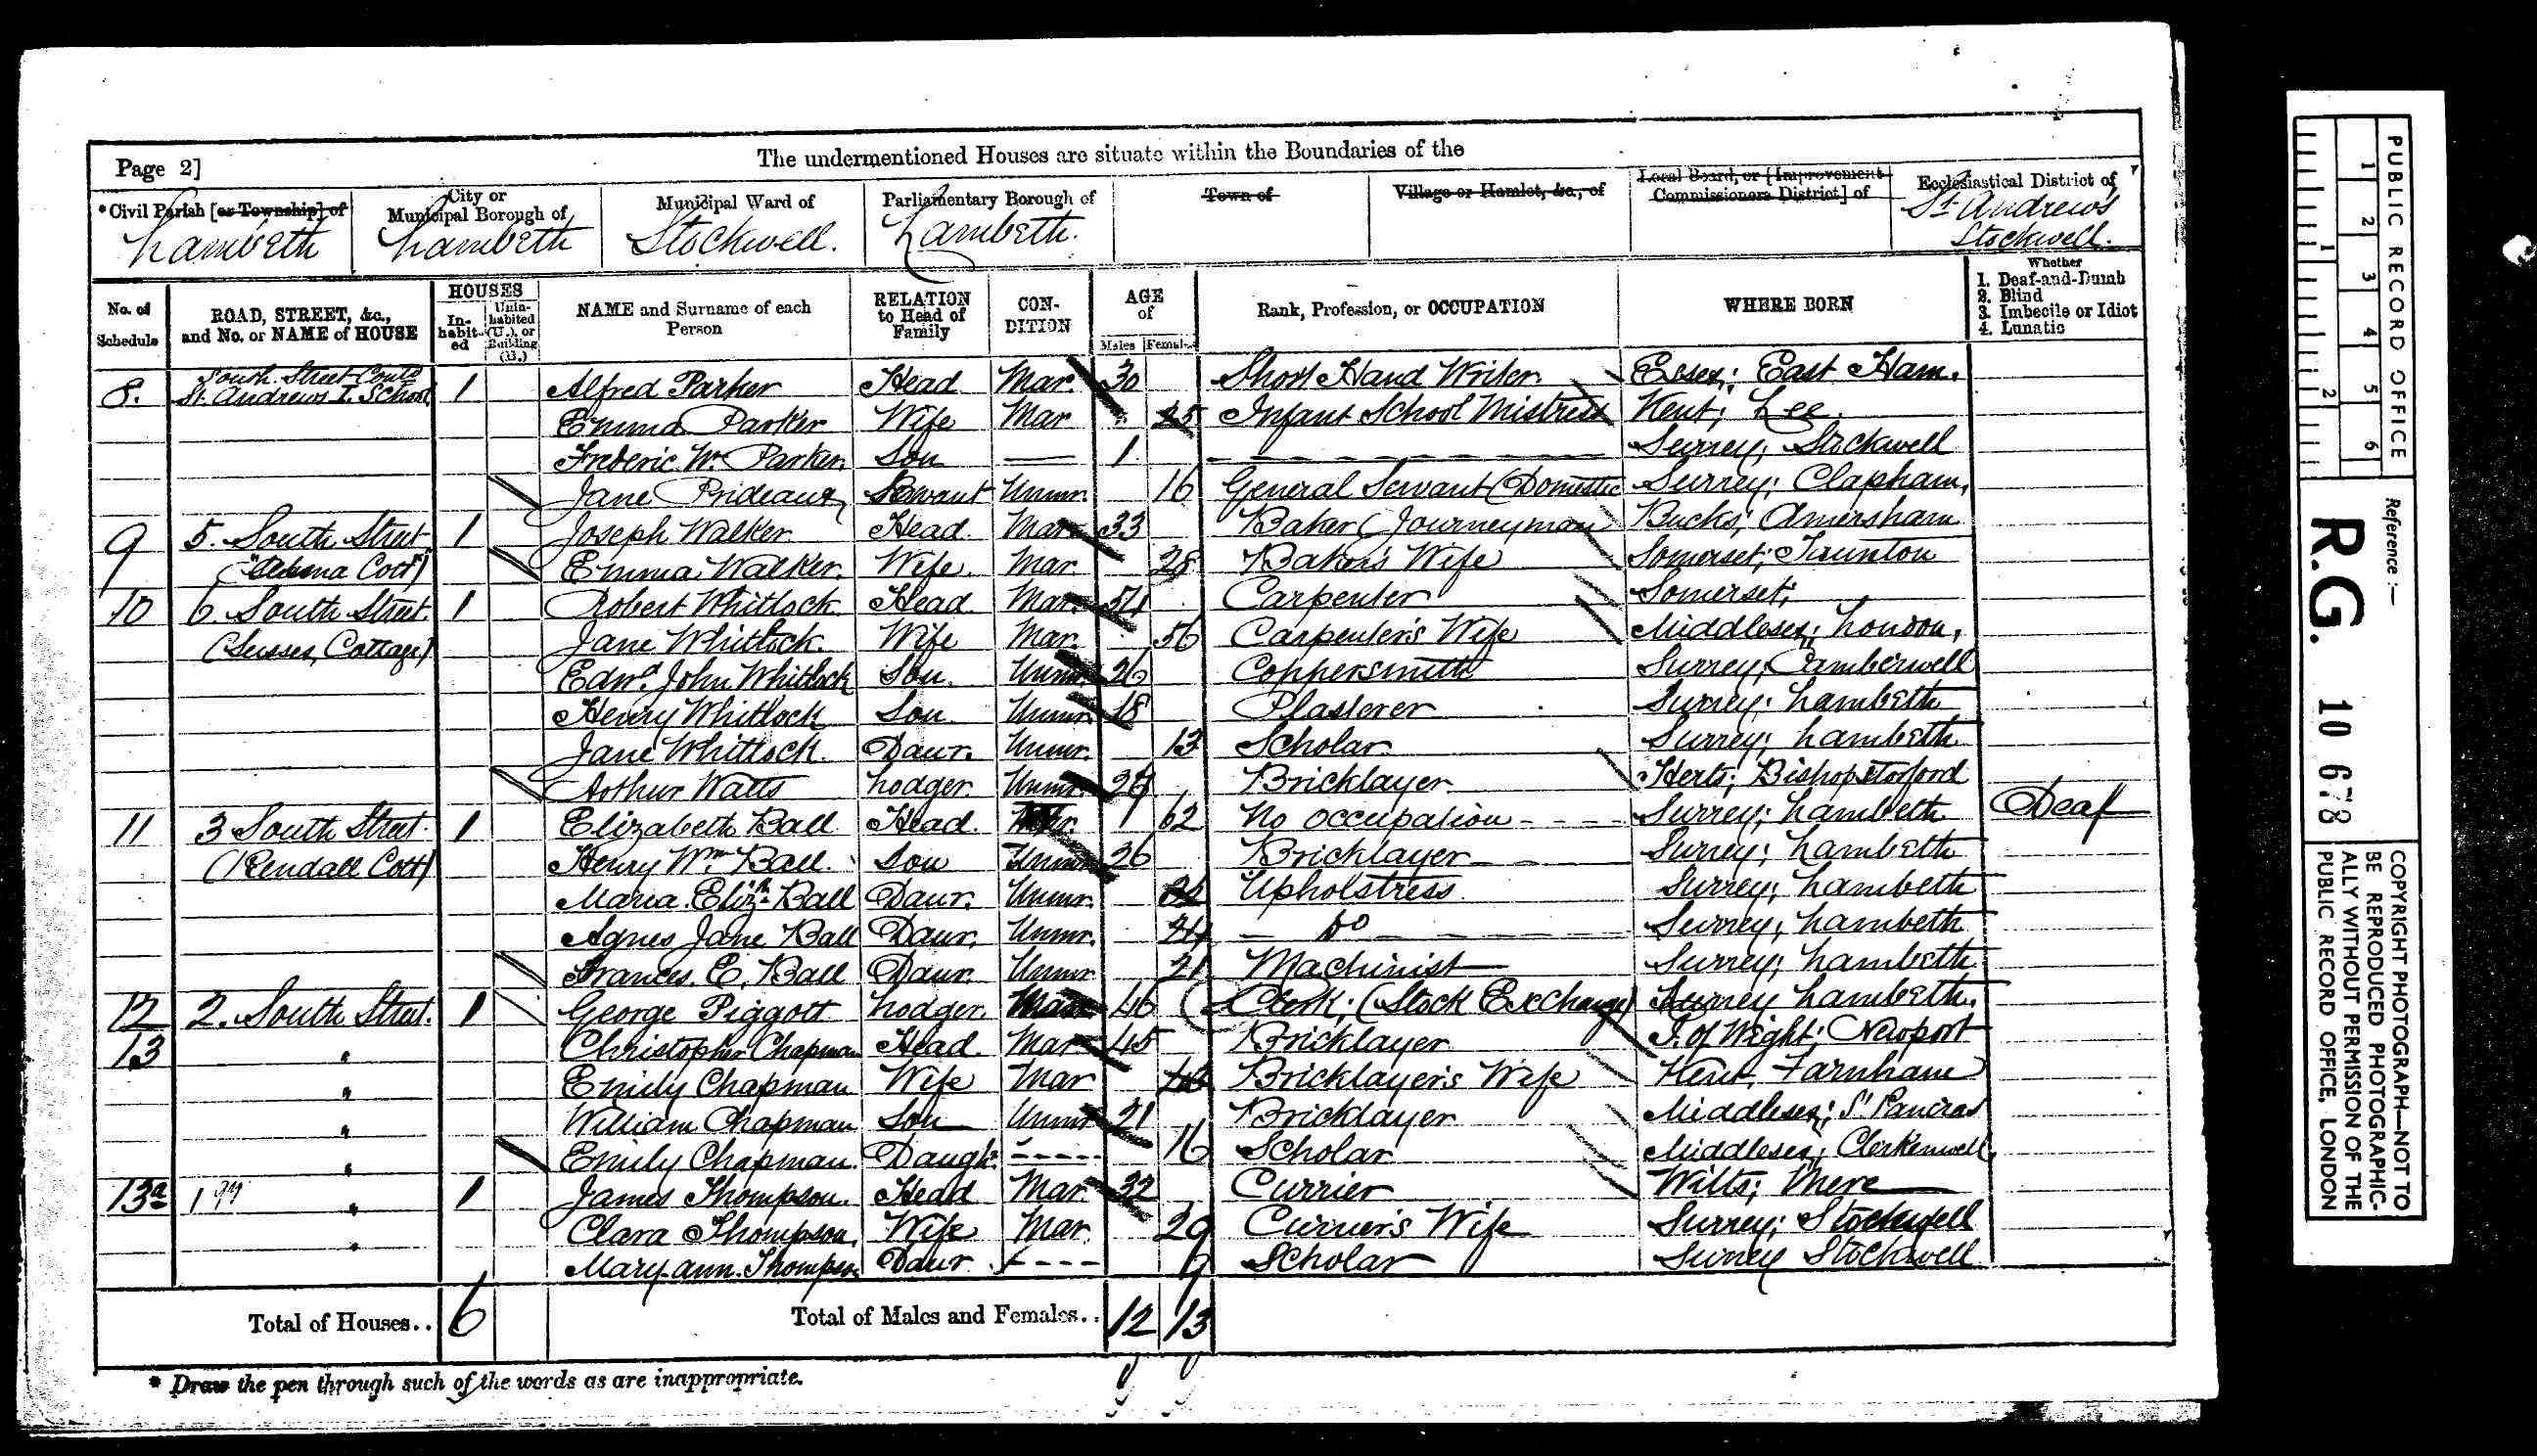 The undermentioned Houses are situate within the Boundaries of the
Page 2]
*Civil Parish [or Township] of
Lambeth
City or
Municipal Borough of
Lambeth
Municipal Ward of
Stockwell.
Parliamentary Borough of
Lambeth.
Town of
Village or Hamlet, &c., of
Local Board, or [Improvement
Commissioners District] of
Ecclesiastical District of
St. Andrew's
Stockwell.
No. of
Schedule
ROAD, STREET, &c.,
and No. or NAME of HOUSE
HOUSES
In-
habit-
ed
Unin-
habited
(U.), or
Building
(B.)
NAME and Surname of each
Person
RELATION
to Head of
Family
CON-
DITION
AGE
of
Males Females
Rank, Profession, or OCCUPATION
WHERE BORN
Whether
1. Deaf-and-Dumb
2. Blind
3. Imbecile or Idiot
4. Lunatic
South Street Contd
8. St. Andrews I. School 1 Alfred Parker Head Mar. 30 Short Hand Writer Essex; East Ham.
Emma Parker Wife Mar 25 Infant School Mistress Kent; Lee.
Frederic Wm Parker Son 1 Surrey; Stockwell
Jane Prideaux Servant Unmr. 16 General Servant (Domestic Surrey; Clapham,
9 5. South Street 1 Joseph Walker Head. Mar 33 Baker (Journeyman) Bucks; Amersham
Cott) Emma Walker. Wife. Mar. 28 Baker's Wife Somerset; Taunton
10 6. South Street. 1 Robert Whitlock Head Mar. 54 Carpenter Somerset;
(Sussex Cottage) Jane Whitlock. Wife Mar. 56 Carpenter's Wife Middlesex; London,
Edwd. John Whitlock Son. Unmr. 26 Coppersmith Surrey; Camberwell
Henry Whitlock Son Unmr. 18 Plasterer Surrey; Lambeth
Jane Whitlock. Daur. Unmr. 13 Scholar Surrey; Lambeth
Arthur Watts Lodger Unmr. Bricklayer Herts; Bishop Storford
11 3 South Street. 1 Elizabeth Ball Head. 62 No occupation Surrey; Lambeth Deaf
(Kendall Cott) Henry Wm Ball. Son Unmr 26 Bricklayer Surrey; Lambeth
Maria Elizth Ball Daur. Unmr. Upholstress Surrey; Lambeth
Agnes Jane Ball Daur. Unmr. 24 Do Surrey; Lambeth
Frances. E. Ball Daur. Unmr 21 Machinist Surrey; Lambeth
12 2. South Street. 1 George Piggott Lodger. 46 Clerk; (Stock Exchange) Surrey Lambeth.
13 " Christopher Chapman Head. Mar 45 Bricklayer I. of Wight; Newport
" Emily Chapman Wife Mar Bricklayer's Wife Kent, Farnham
" William Chapman Son Unmr 21 Bricklayer Middlesex; St Pancras
" Emily Chapman. Daugh. 16 Scholar Middlesex; Clerkenwell,
13a 1 " 1 James Thompson. Head Mar. 32 Currier Wilts; Mere
" Clara Thompson. Wife Mar. 29 Currier's Wife Surrey; Stockwell
" Mary-ann. Thompson Daur. 6 Scholar Surrey Stockwell
Total of Houses.. 6 Total of Males and Females.. 12 13
* Draw the pen through such of the words as are inappropriate.
PUBLIC RECORD OFFICE
1 2 3 4 5 6
1 2
Reference :-
R.G. 10 678
COPYRIGHT PHOTOGRAPH—NOT TO
BE REPRODUCED PHOTOGRAPHIC-
ALLY WITHOUT PERMISSION OF THE
PUBLIC RECORD OFFICE, LONDON